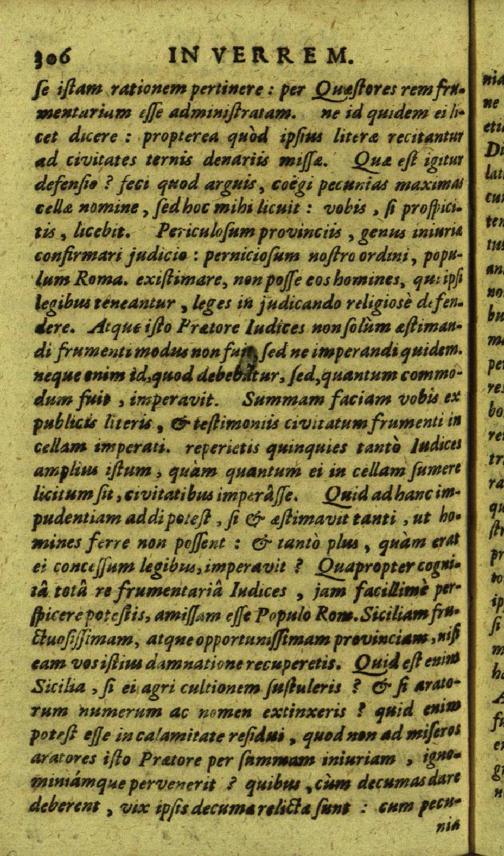 306 IN VERREM.
se istam rationem pertinere : per Quæstores rem fru-
mentariam esse administratam. ne id quidem ei li-
cet dicere : propterea quòd ipsius literæ recitantur
ad civitates ternis denariis missæ. Quæ est igitur
defensio ? feci quod arguis, coëgi pecunias maximas
cellæ nomine, sed hoc mihi licuit : vobis, si prospici-
tis, licebit. Periculosum provinciis, genus iniuriæ
confirmari judicio : perniciosum nostro ordini, popu-
lum Roma. existimare, non posse eos homines, qui ipsi
legibus teneantur, leges in judicando religiosè defen-
dere. Atque isto Prætore Iudices non solùm æstiman-
di frumenti modus non fuit, sed ne imperandi quidem.
neque enim id, quod debebatur, sed, quantum commo-
dum fuit, imperavit. Summam faciam vobis ex
publicis literis, & testimoniis civitatum frumenti in
cellam imperati. reperietis quinquies tantò Iudices
amplius istum, quàm quantum ei in cellam sumere
licitum sit, civitatibus imperâsse. Quid ad hanc im-
pudentiam addi potest, si & æstimavit tanti, ut ho-
mines ferre non possent : & tantò plus, quàm erat
ei concessum legibus, imperavit ? Quapropter cogni-
tâ totâ re frumentariâ Iudices, jam facillimè per-
spicere potestis, amissam esse Populo Rom. Siciliam fru-
ctuosissimam, atque opportunissimam provinciam, nisi
eam vos istius damnatione recuperetis. Quid est enim
Sicilia, si ei agri cultionem sustuleris ? & si arato-
rum numerum ac nomen extinxeris ? quid enim
potest esse in calamitate residui, quod non ad miseros
aratores isto Prætore per summam iniuriam, igno-
miniámque pervenerit ? quibus, cùm decumas dare
deberent, vix ipsis decuma relicta sunt : cum pecu-
nia